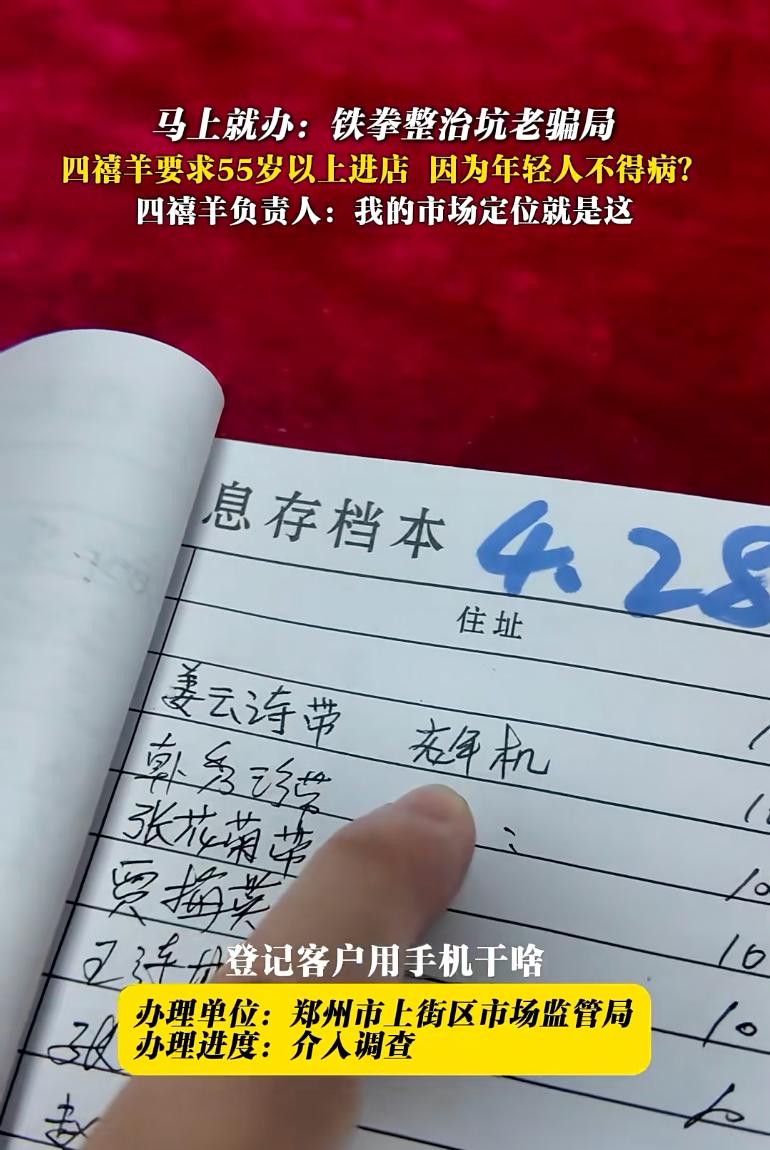 马上就办：铁拳整治坑老骗局
四禧羊要求55岁以上进店 因为年轻人不得病?
四禧羊负责人：我的市场定位就是这
息存档本 4.28
住址
姜云诗带 老年机
韩秀珍带
张花菊带
贾梅英
10
10
登记客户用手机干啥
办理单位：郑州市上街区市场监管局
办理进度：介入调查